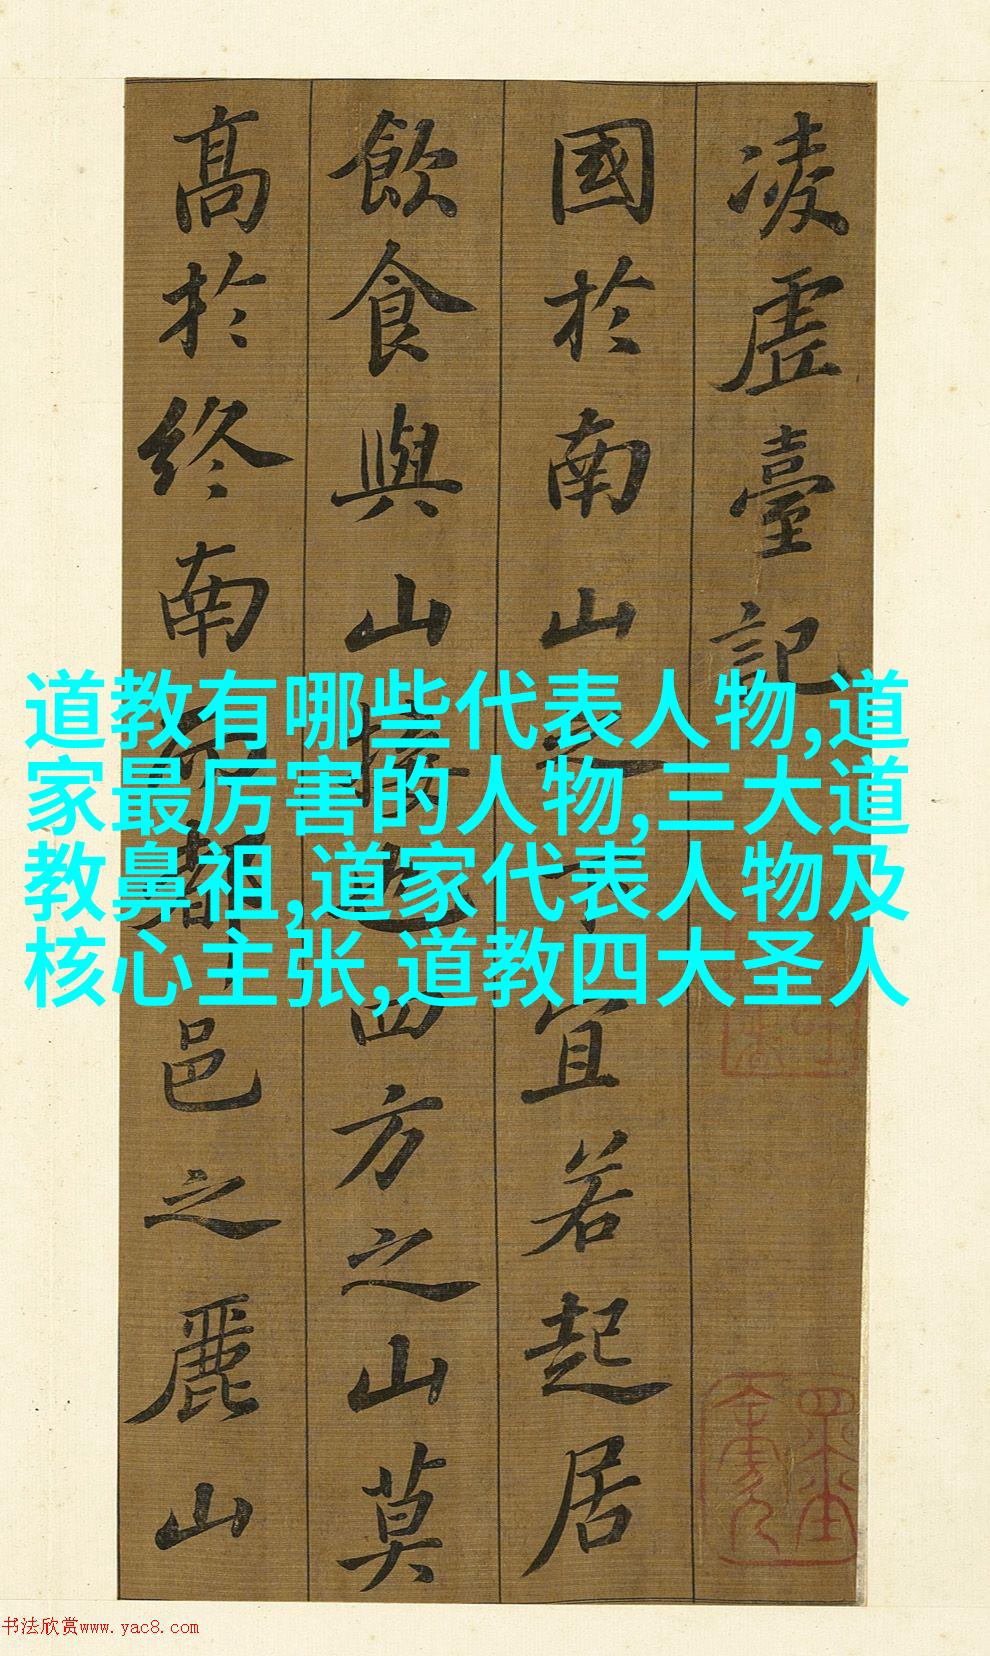 凌虚臺記
國於南山之下宜若起居
飲食與山接也四方之山莫
高於终南而都邑之麗山
道教有哪些代表人物,道
家最厉害的人物,三大道
教鼻祖,道家代表人物及
核心主张,道教四大圣人
书法欣赏www.yac8.com